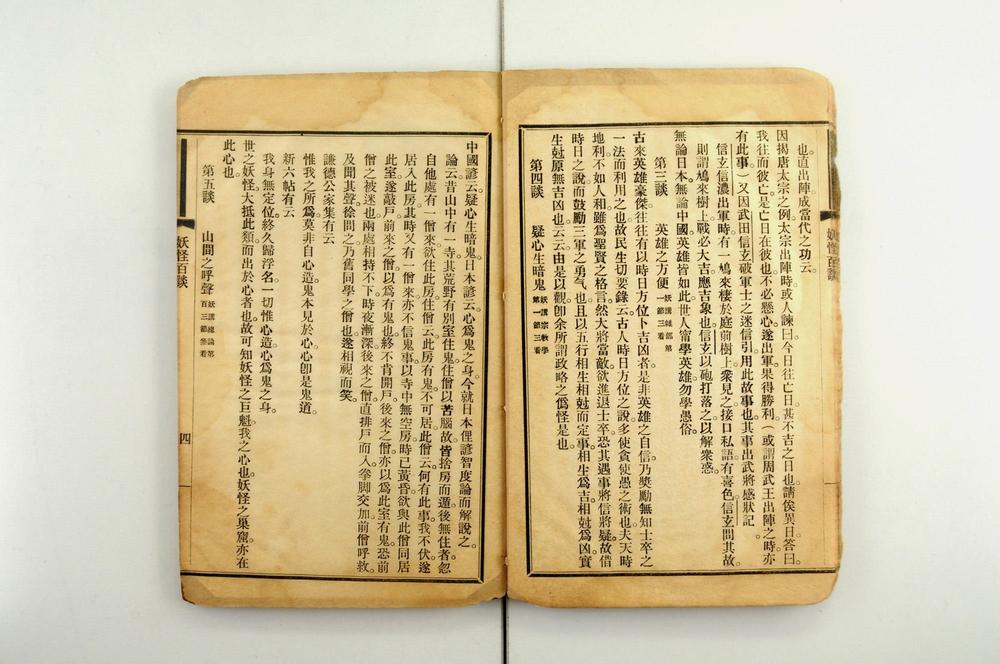 也直出陣成當代之功云。
因揭唐太宗之例。太宗出陣時或人諫曰今日往亡日。日甚不吉之日也。請俟異日。答曰。
我往而彼亡。是亡日在彼也。不必懸心。遂出軍。果得勝利。(或謂周武王出陣之時亦
有此事)又因武田信玄破軍士之迷信。引用此故事也。其事出武將感狀記。
信玄信濃出軍時。有一鳩來棲於庭前樹上。衆見之。接口私語。有喜色。信玄問其故。
則謂鳩來樹上。戰必大吉。應吉象也。信玄以砲打落之。以解衆惑。
無論日本。無論中國。英雄皆如此。世人甯學英雄。勿學愚俗。
第三談　英雄之方便　妖講雜部第一節三看
古來英雄豪傑。往往有以時日方位卜吉凶者。是非英雄之自信。乃獎勵無知士卒之
一法而利用之也。故民生切要錄云。古人時日方位之說。多使貪使愚之術也。夫天時
地利不如人和。雖爲聖賢之格言。然大將當敵。欲進退士卒。恐其遇事將信將疑。故借
時日之說。而鼓勵三軍之勇气也。且以五行相生相尅而定事。相生爲吉。相尅爲凶。實
生尅原無吉凶也云云。由是以觀。卽余所謂政略之僞怪是也。
第四談　疑心生暗鬼　妖講宗敎學第一節三看
中國諺云。疑心生暗鬼。日本諺云。心爲鬼之身。今就日本俚諺智度論而解說之。
論云。昔山中有一寺。其荒野有別室住鬼。住僧以苦腦故。皆捨房而遁。後無住者。忽
自他處有一僧來欲住此房。住僧云。此房有鬼。不可居。此僧云。何有此事。我不伏。遂
居入此房。其時又有一僧來。亦不信鬼事。以寺中無空房。時已黃昏。欲與此僧同居
此室。遂敲戶。前來之僧。以爲有鬼也。終不肯開戶。後來之僧。亦以爲此室有鬼。恐前
僧之被迷也。兩處相持不下。時夜漸深。後來之僧。直排戶而入。拳脚交加。前僧呼救。
及聞其聲。徐問之。乃舊同學之僧也。遂相視而笑。
謙德公家集有云
惟我之所爲。莫非自心造鬼。本見於心。心卽是鬼道。
新六帖有云
我身無定位。終久歸浮名。一切惟心造。心爲鬼之身。
世之妖怪大抵此類。而出於心者也。故可知妖怪之巨魁。我之心也。妖怪之巢窟。亦在
此心也。
第五談　山間之呼聲　妖講總論第百三節參看
妖怪百談
四
妖怪百談